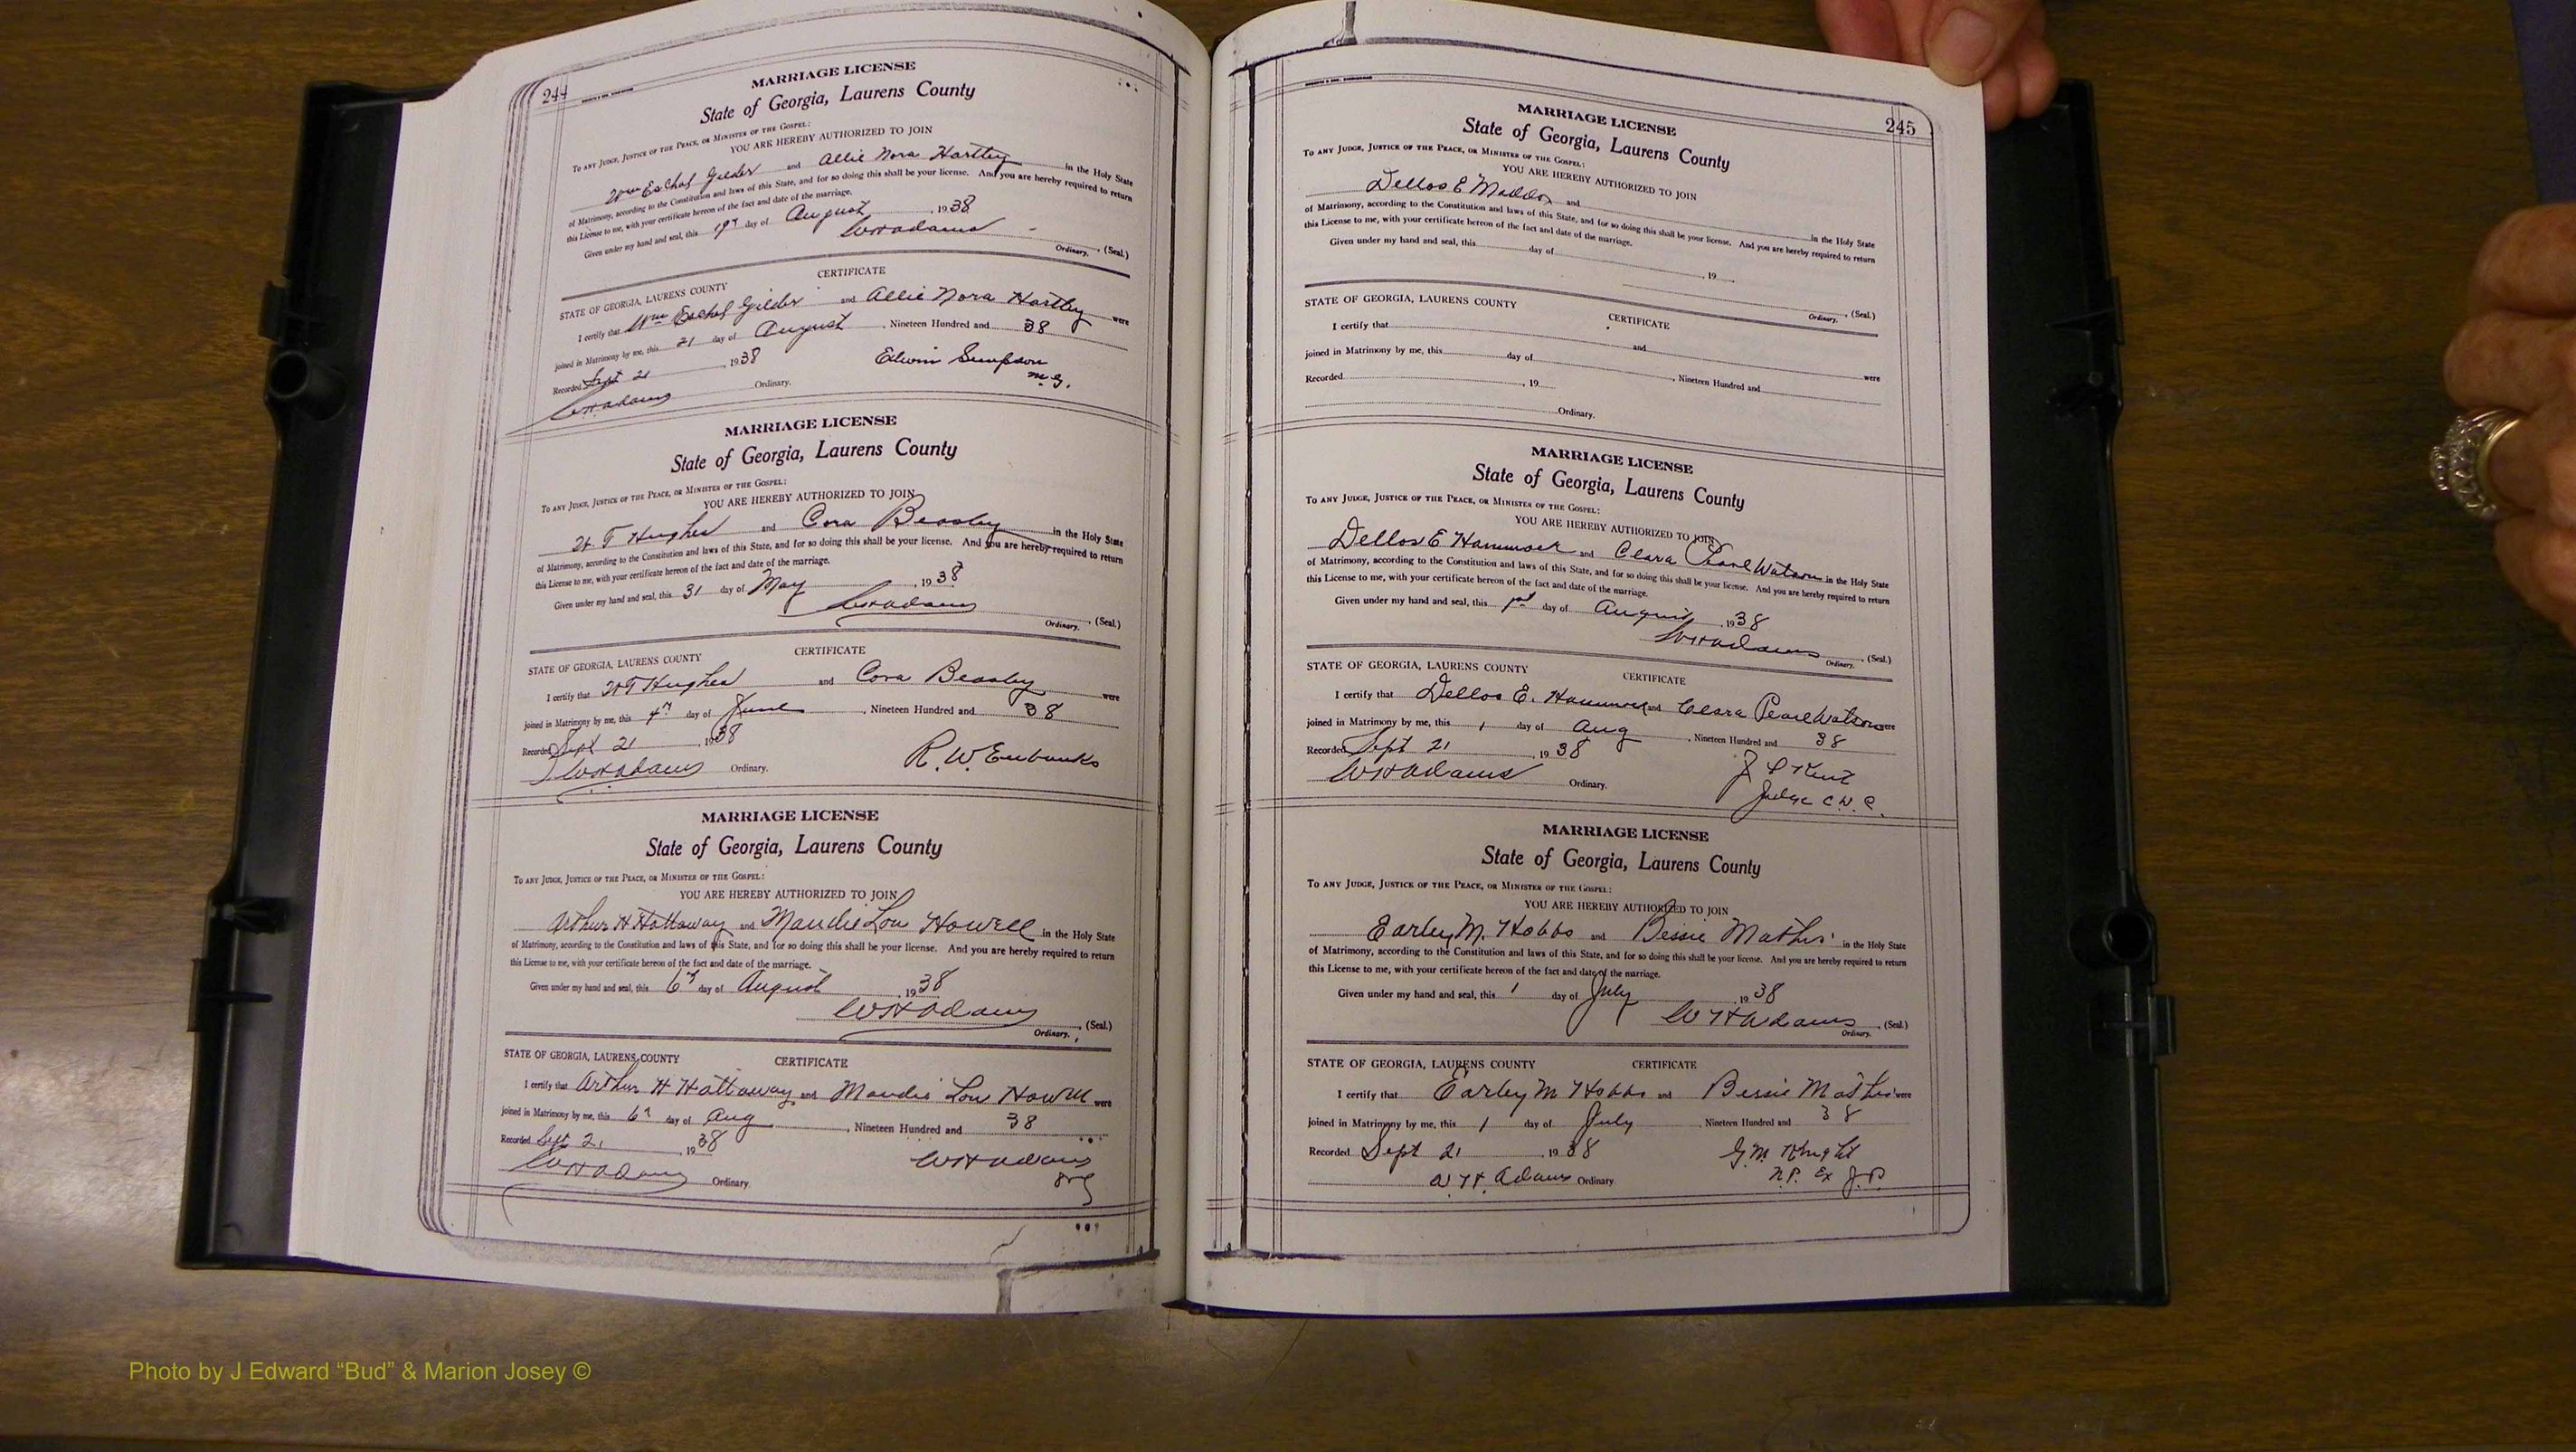 244
MARRIAGE LICENSE
State of Georgia, Laurens County
To any Judge, Justice of the Peace, or Minister of the Gospel:
YOU ARE HEREBY AUTHORIZED TO JOIN
Wm Eschol Gilder and Allie Nora Hartley in the Holy State
of Matrimony, according to the Constitution and laws of this State, and for so doing this shall be your license. And you are hereby required to return
this License to me, with your certificate hereon of the fact and date of the marriage.
Given under my hand and seal, this 19th day of August, 1938
WH Adams
Ordinary. (Seal.)
CERTIFICATE
STATE OF GEORGIA, LAURENS COUNTY
I certify that Wm Eschol Gilder and Allie Nora Hartley were
joined in Matrimony by me, this 21 day of August, Nineteen Hundred and 38
Recorded Sept 21, 1938
Edwin Simpson
M.G.
WH Adams Ordinary.
MARRIAGE LICENSE
State of Georgia, Laurens County
To any Judge, Justice of the Peace, or Minister of the Gospel:
YOU ARE HEREBY AUTHORIZED TO JOIN
Hughes and Cora Beasley in the Holy State
of Matrimony, according to the Constitution and laws of this State, and for so doing this shall be your license. And you are hereby required to return
this License to me, with your certificate hereon of the fact and date of the marriage.
Given under my hand and seal, this 31 day of May, 1938
WH Adams
Ordinary. (Seal.)
CERTIFICATE
STATE OF GEORGIA, LAURENS COUNTY
I certify that Hughes and Cora Beasley were
joined in Matrimony by me, this 4th day of June, Nineteen Hundred and 38
Recorded Sept 21, 1938
R. W. Eubanks
WH Adams Ordinary.
MARRIAGE LICENSE
State of Georgia, Laurens County
To any Judge, Justice of the Peace, or Minister of the Gospel:
YOU ARE HEREBY AUTHORIZED TO JOIN
Arthur H Hattaway and Maudie Lou Howell in the Holy State
of Matrimony, according to the Constitution and laws of this State, and for so doing this shall be your license. And you are hereby required to return
this License to me, with your certificate hereon of the fact and date of the marriage.
Given under my hand and seal, this 6th day of August, 1938
WH Adams
Ordinary. (Seal.)
STATE OF GEORGIA, LAURENS COUNTY CERTIFICATE
I certify that Arthur H Hattaway and Maudie Lou Howell were
joined in Matrimony by me, this 6th day of Aug, Nineteen Hundred and 38
Recorded Sept 21, 1938
WH Adams
WH Adams Ordinary.
245
MARRIAGE LICENSE
State of Georgia, Laurens County
To any Judge, Justice of the Peace, or Minister of the Gospel:
YOU ARE HEREBY AUTHORIZED TO JOIN
Dellos E Maddox and in the Holy State
of Matrimony, according to the Constitution and laws of this State, and for so doing this shall be your license. And you are hereby required to return
this License to me, with your certificate hereon of the fact and date of the marriage.
Given under my hand and seal, this day of , 19
Ordinary. (Seal.)
STATE OF GEORGIA, LAURENS COUNTY
CERTIFICATE
I certify that and were
joined in Matrimony by me, this day of , Nineteen Hundred and
Recorded , 19
Ordinary.
MARRIAGE LICENSE
State of Georgia, Laurens County
To any Judge, Justice of the Peace, or Minister of the Gospel:
YOU ARE HEREBY AUTHORIZED TO JOIN
Dellos E Hammock and Clara Pearl Watson in the Holy State
of Matrimony, according to the Constitution and laws of this State, and for so doing this shall be your license. And you are hereby required to return
this License to me, with your certificate hereon of the fact and date of the marriage.
Given under my hand and seal, this 1st day of August, 1938
WH Adams
Ordinary. (Seal.)
STATE OF GEORGIA, LAURENS COUNTY CERTIFICATE
I certify that Dellos E. Hammock and Clara Pearl Watson were
joined in Matrimony by me, this 1 day of Aug, Nineteen Hundred and 38
Recorded Sept 21, 1938
J P Kent
WH Adams Ordinary.
Judge C.W.C.
MARRIAGE LICENSE
State of Georgia, Laurens County
To any Judge, Justice of the Peace, or Minister of the Gospel:
YOU ARE HEREBY AUTHORIZED TO JOIN
Earley M. Hobbs and Bessie Mathis in the Holy State
of Matrimony, according to the Constitution and laws of this State, and for so doing this shall be your license. And you are hereby required to return
this License to me, with your certificate hereon of the fact and date of the marriage.
Given under my hand and seal, this 1 day of July, 1938
W H Adams (Seal.)
Ordinary.
STATE OF GEORGIA, LAURENS COUNTY CERTIFICATE
I certify that Earley M Hobbs and Bessie Mathis were
joined in Matrimony by me, this 1 day of July, Nineteen Hundred and 38
Recorded Sept 21, 1938
G.M. Knight
W. H. Adams Ordinary
N.P. Ex J.P.
Photo by J Edward “Bud” & Marion Josey ©